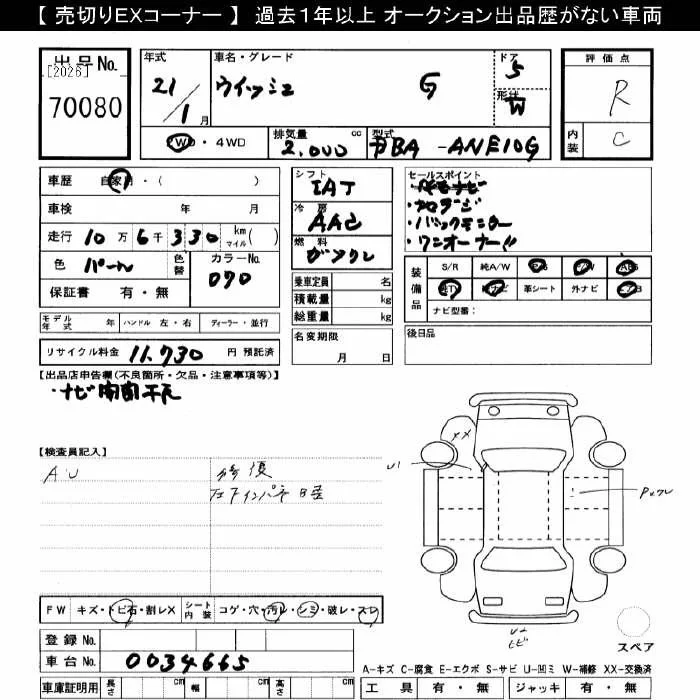 【 売切りEXコーナー 】 過去１年以上 オークション出品歴がない車両
出品No.
[2026]
70080
年式
21/1月
車名・グレード
ウイッシュ G
ドア
5
形状
W
評価点
R
内装
C
2WD・4WD
排気量 cc
2.000
型式
DBA -ANE10G
車歴 自家用・( )
車検 年 月
走行 10万6千330 km マイル ( )
色 パール
色替
カラーNo.
070
保証書 有・無
シフト
IAT
冷房
AAC
燃料
ガソリン
乗車定員 名
積載量 kg
総重量 kg
セールスポイント
・バックモニター
・ワンオーナー!!
装備品
S/R 純A/W P/S P/W ABS
純TV 純ナビ 革シート 外ナビ エアB
ナビ型番：
モデル年式 年 ハンドル 左・右 ディーラー・並行
名変期限
月 日
後日品
リサイクル料金 11.730 円 預託済
【出品店申告欄(不良箇所・欠品・注意事項等)】
・ナビ開閉不良
【検査員記入】
A・U
修復
XX
U1
FW キズ・トビ石・割レX
シート内装 コゲ・穴・汚レ・シミ・破レ・スレ
登録 No.
車台 No. 0034665
車庫証明用 長さ cm 幅 cm 高さ cm
スペア
A-キズ C-腐食 E-エクボ S-サビ U-凹ミ W-補修 XX-交換済
工具 有・無 ジャッキ 有・無